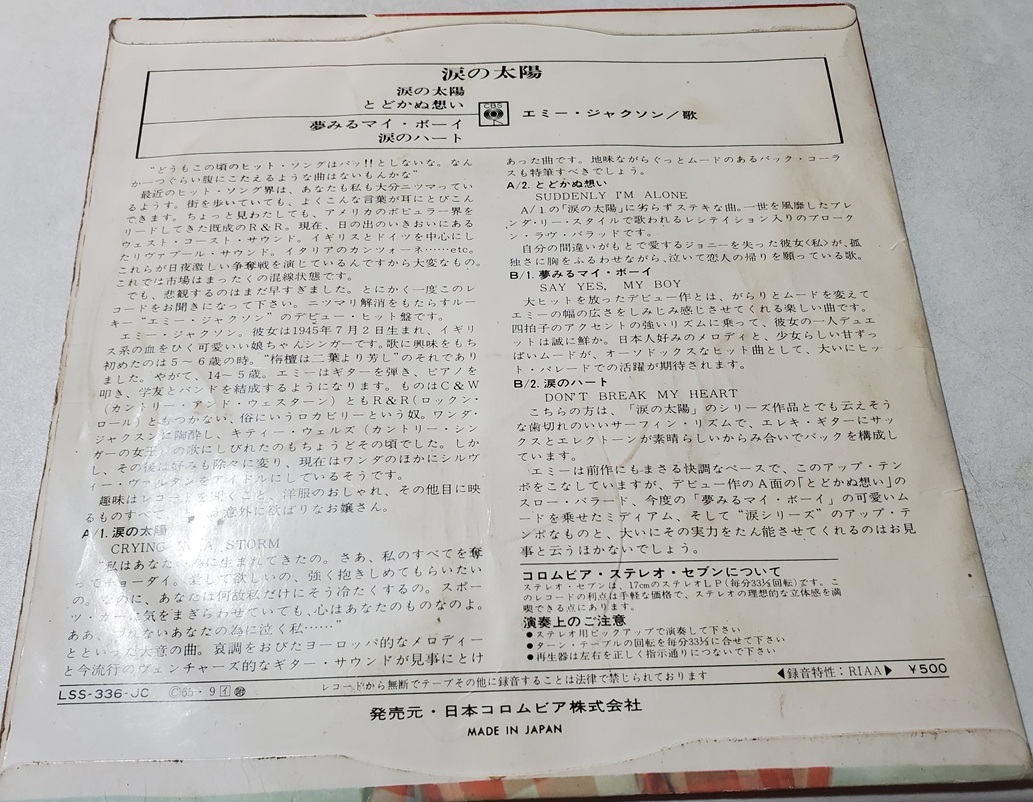 涙の太陽
涙の太陽
とどかぬ想い
夢みるマイ・ボーイ
涙のハート
CBS
エミー・ジャクソン／歌
“どうもこの頃のヒット・ソングはパッ!!としないな。なん
か一つぐらい腹にこたえるような曲はないもんかな”
最近のヒット・ソング界は、あなたも私も大分ニツマってい
るようす。街を歩いていても、よくこんな言葉が耳にとびこん
できます。ちょっと見わたしても、アメリカのポピュラー界を
リードしてきた既成のR&R。現在、日の出のいきおいにある
ウェスト・コースト・サウンド。イギリスとドイツを中心にし
たリヴァプール・サウンド。イタリアのカンツォーネ……etc。
これらが日夜激しい争奪戦を演じているんですから大変なもの。
これでは市場はまったくの混線状態です。
でも、悲観するのはまだ早すぎました。とにかく一度このレ
コードをお聞きになって下さい。ニツマリ解消をもたらすルー
キー“エミー・ジャクソン”のデビュー・ヒット盤です。
エミー・ジャクソン。彼女は1945年7月2日生まれ、イギリ
ス系の血をひく可愛いい娘ちゃんシンガーです。歌に興味をもち
初めたのは5〜6歳の時。“栴檀は二葉より芳し”のそれであり
ました。やがて、14〜5歳。エミーはギターを弾き、ピアノを
叩き、学友とバンドを結成するようになります。ものはC&W
（カントリー・アンド・ウェスターン）ともR&R（ロックン・
ロール）ともつかない、俗にいうロカビリーという奴。ワンダ・
ジャクスンに陶酔し、キティー・ウェルズ（カントリー・シン
ガーの女王）の歌にしびれたのもちょうどその頃でした。しか
し、その後は好みも除々に変り、現在はワンダのほかにシルヴ
ィー・ヴァルタンをアイドルにしているそうです。
趣味はレコードを聴くこと、洋服のおしゃれ、その他目に映
るものすべて 意外に欲ばりなお嬢さん。
A/1. 涙の太陽
CRYING IN A STORM
“私はあなたの為に生まれてきたの。さあ、私のすべてを奪
ってチョーダイ。愛して欲しいの、強く抱きしめてもらいたい
の。なのに、あなたは何故私だけにそう冷たくするの。スポー
ツ・カーに気をまぎらわせていても、心はあなたのものなのよ。
ああ、つれないあなたの為に泣く私……”
とといった大意の曲。哀調をおびたヨーロッパ的なメロディー
と今流行のヴェンチャーズ的なギター・サウンドが見事にとけ
あった曲です。地味ながらぐっとムードのあるバック・コーラ
スも特筆すべきでしょう。
A/2. とどかぬ想い
SUDDENLY I'M ALONE
A/1の「涙の太陽」に劣らずステキな曲。一世を風靡したブレ
ンダ・リー・スタイルで歌われるレシテイション入りのブローク
ン・ラヴ・バラッドです。
自分の間違いがもとで愛するジョニーを失った彼女〈私〉が、孤
独さに胸をふるわせながら、泣いて恋人の帰りを願っている歌。
B/1. 夢みるマイ・ボーイ
SAY YES, MY BOY
大ヒットを放ったデビュー作とは、がらりとムードを変えて
エミーの幅の広さをしみじみ感じさせてくれる楽しい曲です。
四拍子のアクセントの強いリズムに乗って、彼女の一人デュエ
ットは誠に鮮か。日本人好みのメロディと、少女らしい甘ずっ
ぱいムードが、オーソドックスなヒット曲として、大いにヒッ
ト・パレードでの活躍が期待されます。
B/2. 涙のハート
DON'T BREAK MY HEART
こちらの方は、「涙の太陽」のシリーズ作品とでも云えそう
な歯切れのいいサーフィン・リズムで、エレキ・ギターにサッ
クスとエレクトーンが素晴らしいからみ合いでバックを構成し
ています。
エミーは前作にもまさる快調なペースで、このアップ・テン
ポをこなしていますが、デビュー作のA面の「とどかぬ想い」の
スロー・バラード、今度の「夢みるマイ・ボーイ」の可愛いム
ードを乗せたミディアム、そして“涙シリーズ”のアップ・テ
ンポなものと、大いにその実力をたん能させてくれるのはお見
事と云うほかないでしょう。
コロムビア・ステレオ・セブンについて
ステレオ・セブンは、17cmのステレオLP（毎分33⅓回転）です。こ
のレコードの利点は手軽な価格で、ステレオの理想的な立体感を満
喫できる点にあります。
演奏上のご注意
●ステレオ用ピックアップで演奏して下さい
●ターン・テーブルの回転を毎分33⅓に合せて下さい
●再生器は左右を正しく指示通りにつないで下さい
LSS-336-JC Ⓒ65・9 イ
レコードから無断でテープその他に録音することは法律で禁じられております
◀録音特性：RIAA▶ ￥500
発売元・日本コロムビア株式会社
MADE IN JAPAN